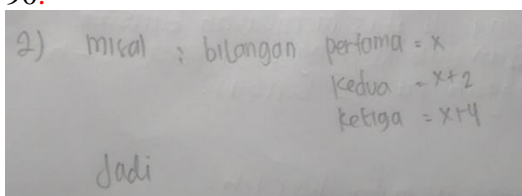 90.
2) misal : bilangan pertama = x
kedua = x+2
ketiga = x+4
Jadi